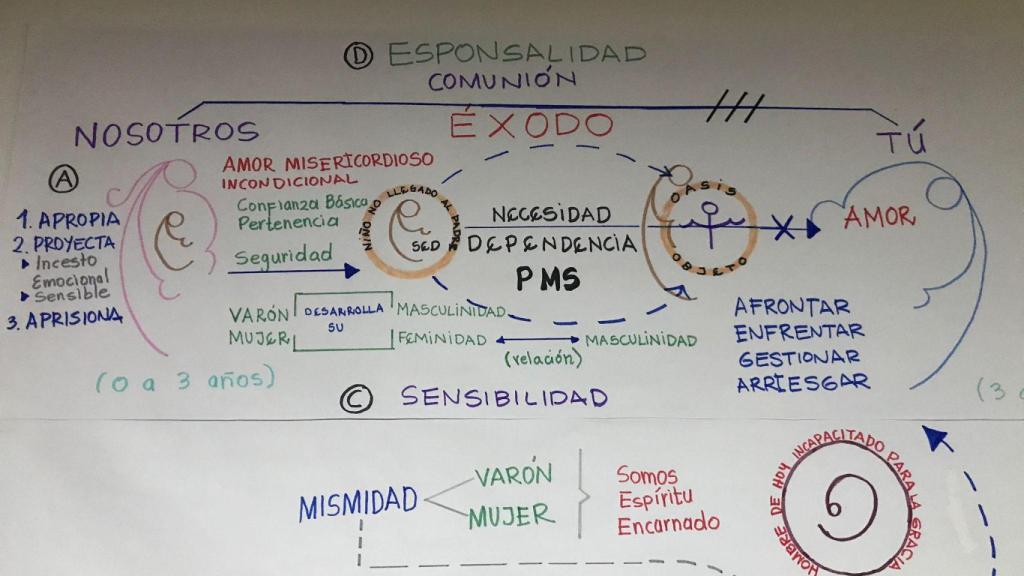 D ESPONSALIDAD
COMUNIÓN
NOSOTROS
ÉXODO
TÚ
A
1. APROPIA
2. PROYECTA
Incesto
Emocional
Sensible
3. APRISIONA
(0 a 3 años)
AMOR MISERICORDIOSO
INCONDICIONAL
Confianza Básica
Pertenencia
Seguridad
NIÑO NO LLEGADO AL PADRE
SED
NECESIDAD
DEPENDENCIA
PMS
OASIS
OBJETO
X
AMOR
VARÓN
MUJER
DESARROLLA
SU
MASCULINIDAD
FEMINIDAD
(relación)
MASCULINIDAD
AFRONTAR
ENFRENTAR
GESTIONAR
ARRIESGAR
(3
C SENSIBILIDAD
MISMIDAD
VARÓN
MUJER
Somos
Espíritu
Encarnado
HOMBRE DE HOY INCAPACITADO PARA LA GRACIA